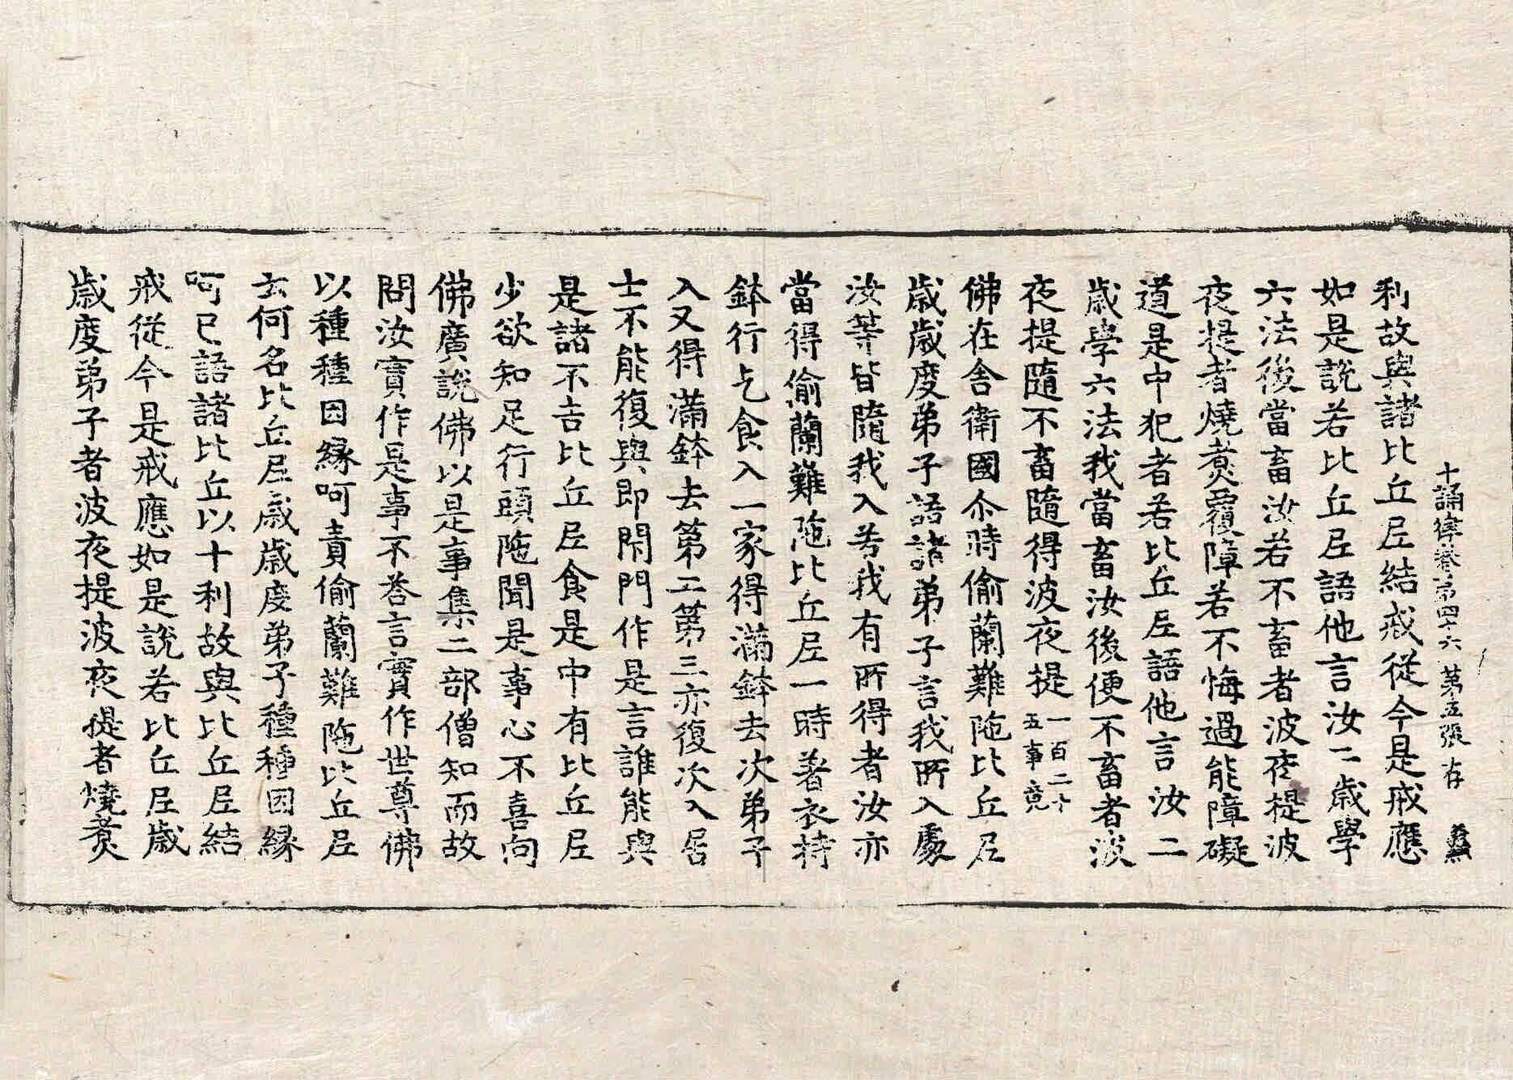 十誦律卷第四十六 第五張 存
利故與諸比丘尼結戒從今是戒應
如是說若比丘尼語他言汝二歲學
六法後當畜汝若不畜者波夜提波
夜提者燒煑覆障若不悔過能障礙
道是中犯者若比丘尼語他言汝二
歲學六法我當畜汝後便不畜者波
夜提隨不畜隨得波夜提一百二十五事竟
佛在舍衛國尒時偷蘭難陁比丘尼
歲歲度弟子語諸弟子言我所入處
汝等皆隨我入若我有所得者汝亦
當得偷蘭難陁比丘尼一時著衣持
鉢行乞食入一家得滿鉢去次弟子
入又得滿鉢去第二第三亦復次入居
士不能復與即閇門作是言誰能與
是諸不吉比丘尼食是中有比丘尼
少欲知足行頭陁聞是事心不喜向
佛廣說佛以是事集二部僧知而故
問汝實作是事不荅言實作世尊佛
以種種因緣呵責偷蘭難陁比丘尼
云何名比丘尼歲歲度弟子種種因緣
呵已語諸比丘以十利故與比丘尼結
戒從今是戒應如是說若比丘尼歲
歲度弟子者波夜提波夜提者燒煑